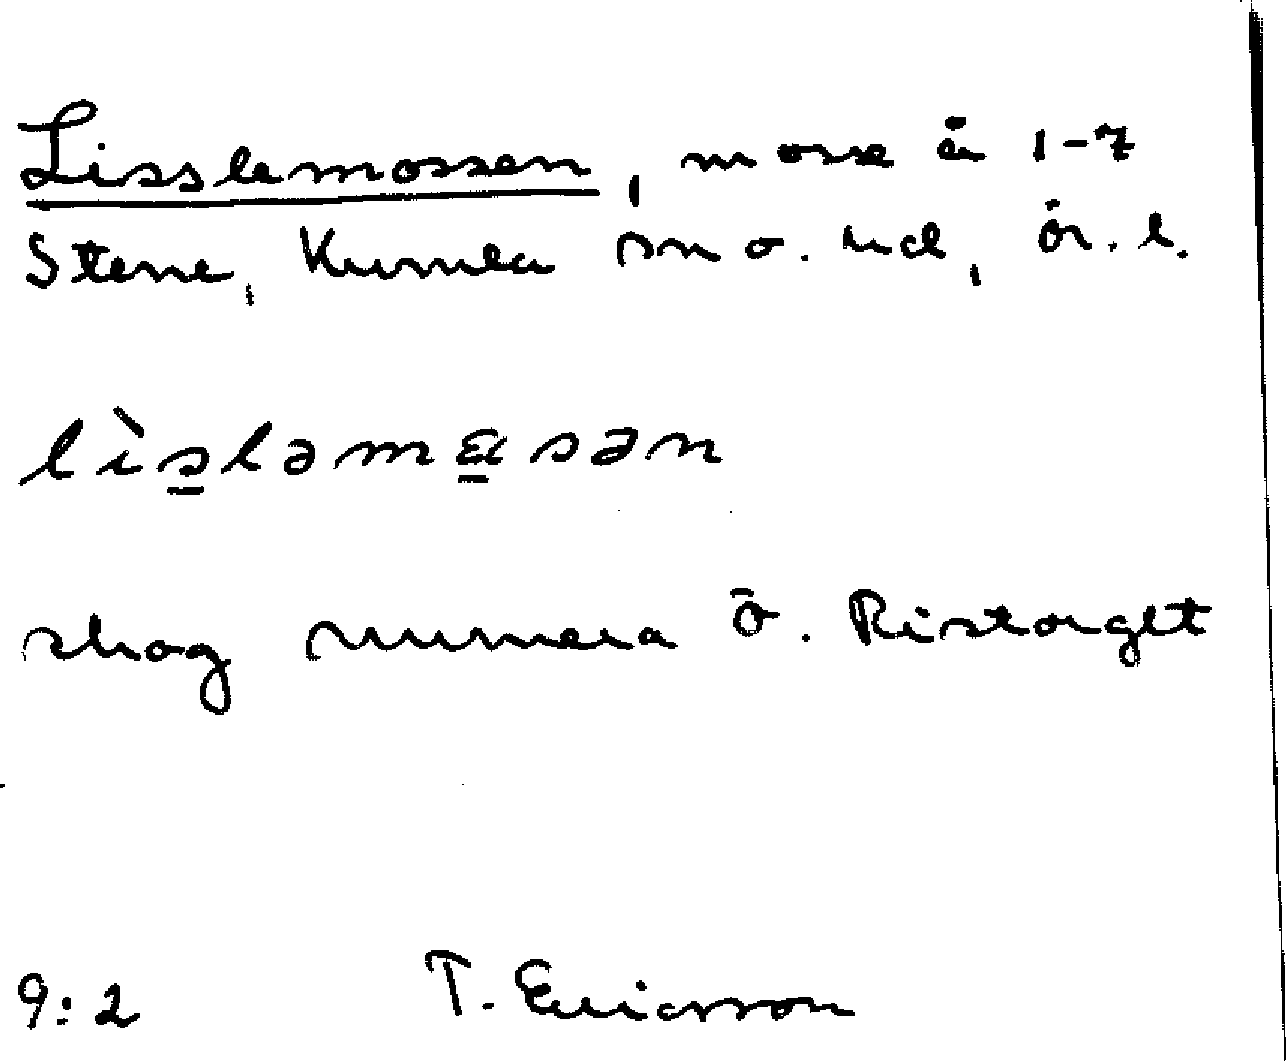 Lisslemossen, mosse å 1-7
Stene, Kumla sn o. hd, ör. l.
lìsləmɑsən
skog numera ö. Ristorget
9:2 T. Ericsson